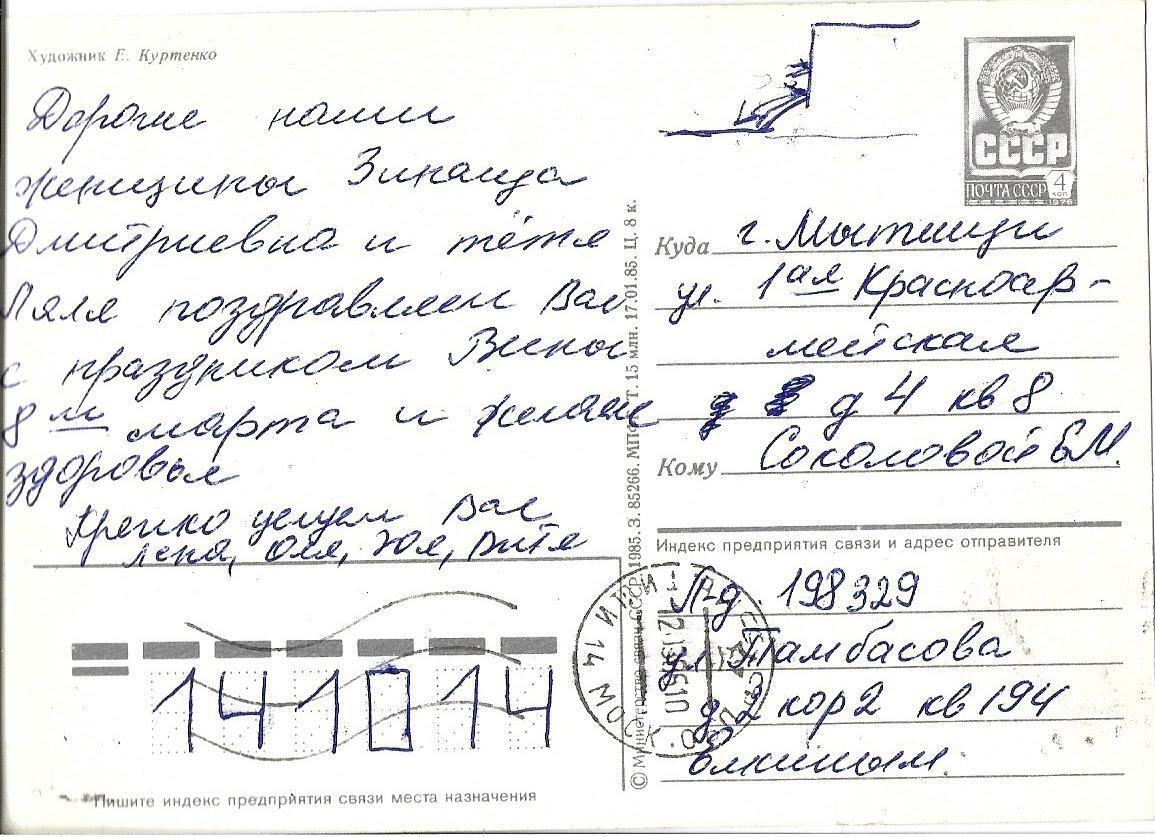 Художник Е. Куртенко
Дорогие наши
женщины Зинаида
Дмитриевна и тётя
Ляля поздравляем Вас
с праздником Весны
8 м марта и желаем
здоровья
Крепко целуем Вас
Лена, Оля, Юля, Витя
СССР
ПОЧТА СССР 4 коп
1976
Куда г. Мытищи
ул. 1ая Красноар-
мейская
д 4 кв 8
Кому Соколовой Е.М.
Индекс предприятия связи и адрес отправителя
Л-д. 198329
ул Тамбасова
кор 2 кв 194
© Министерство связи СССР, 1985. З. 85266. МПФГ. Т. 15 млн. 17.01.85. Ц. 8 к.
141014
Пишите индекс предприятия связи места назначения